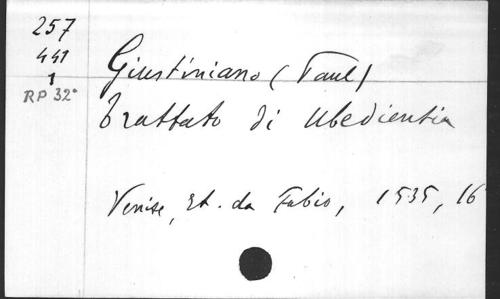 257
441
1
RP 32°
Giustiniano (Paul)
Trattato di Ubedientia
Venise, Et. da Fabio, 1535, 16